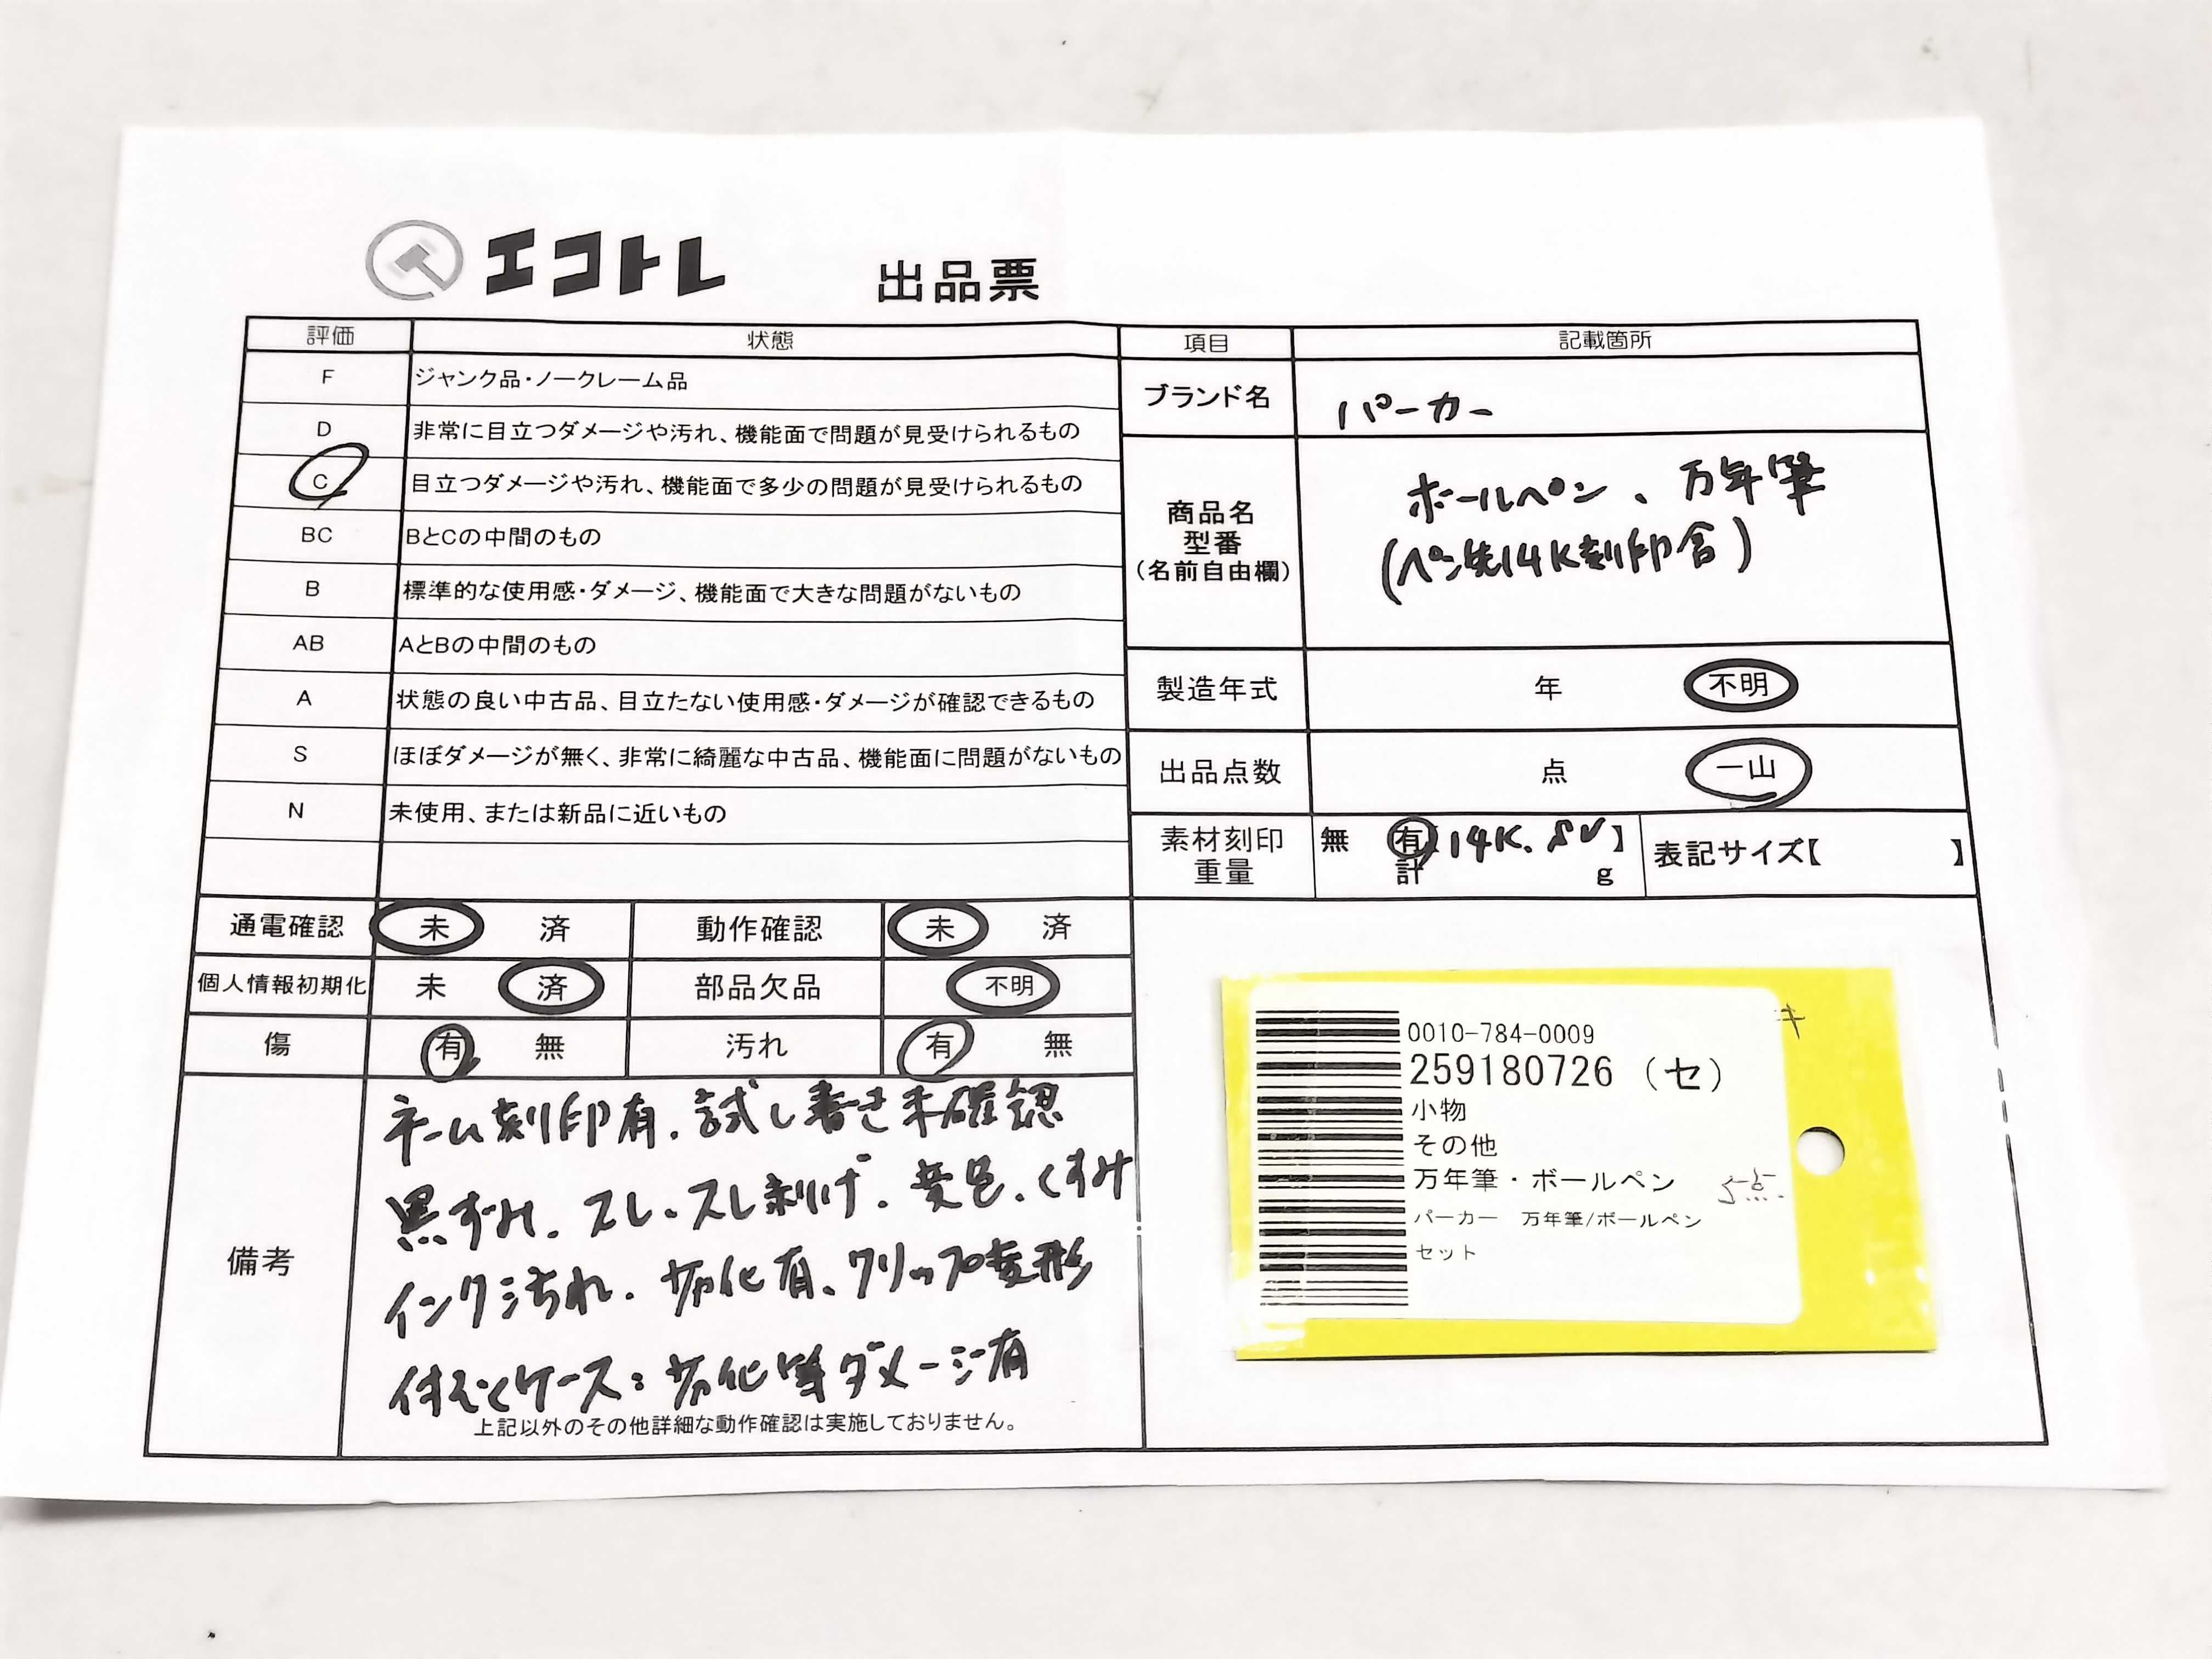 エコトレ 出品票
評価 状態
F ジャンク品・ノークレーム品
D 非常に目立つダメージや汚れ、機能面で問題が見受けられるもの
C 目立つダメージや汚れ、機能面で多少の問題が見受けられるもの
BC BとCの中間のもの
B 標準的な使用感・ダメージ、機能面で大きな問題がないもの
AB AとBの中間のもの
A 状態の良い中古品、目立たない使用感・ダメージが確認できるもの
S ほぼダメージが無く、非常に綺麗な中古品、機能面に問題がないもの
N 未使用、または新品に近いもの
項目 記載箇所
ブランド名 パーカー
商品名
型番
(名前自由欄)
ボールペン、万年筆
(ペン先14K刻印含)
製造年式 年 不明
出品点数 点 一山
素材刻印 無 有 14K. SV】
重量 計 g
表記サイズ【 】
通電確認 未 済 動作確認 未 済
個人情報初期化 未 済 部品欠品 不明
傷 有 無 汚れ 有 無
備考
ネーム刻印有.試し書き未確認
黒ずみ.スレ.スレ剥げ.変色.くすみ
インク汚れ.劣化有、クリップ変形
ケース:劣化等ダメージ有
上記以外のその他詳細な動作確認は実施しておりません。
0010-784-0009
259180726 (セ)
小物
その他
万年筆・ボールペン
パーカー 万年筆/ボールペン
セット